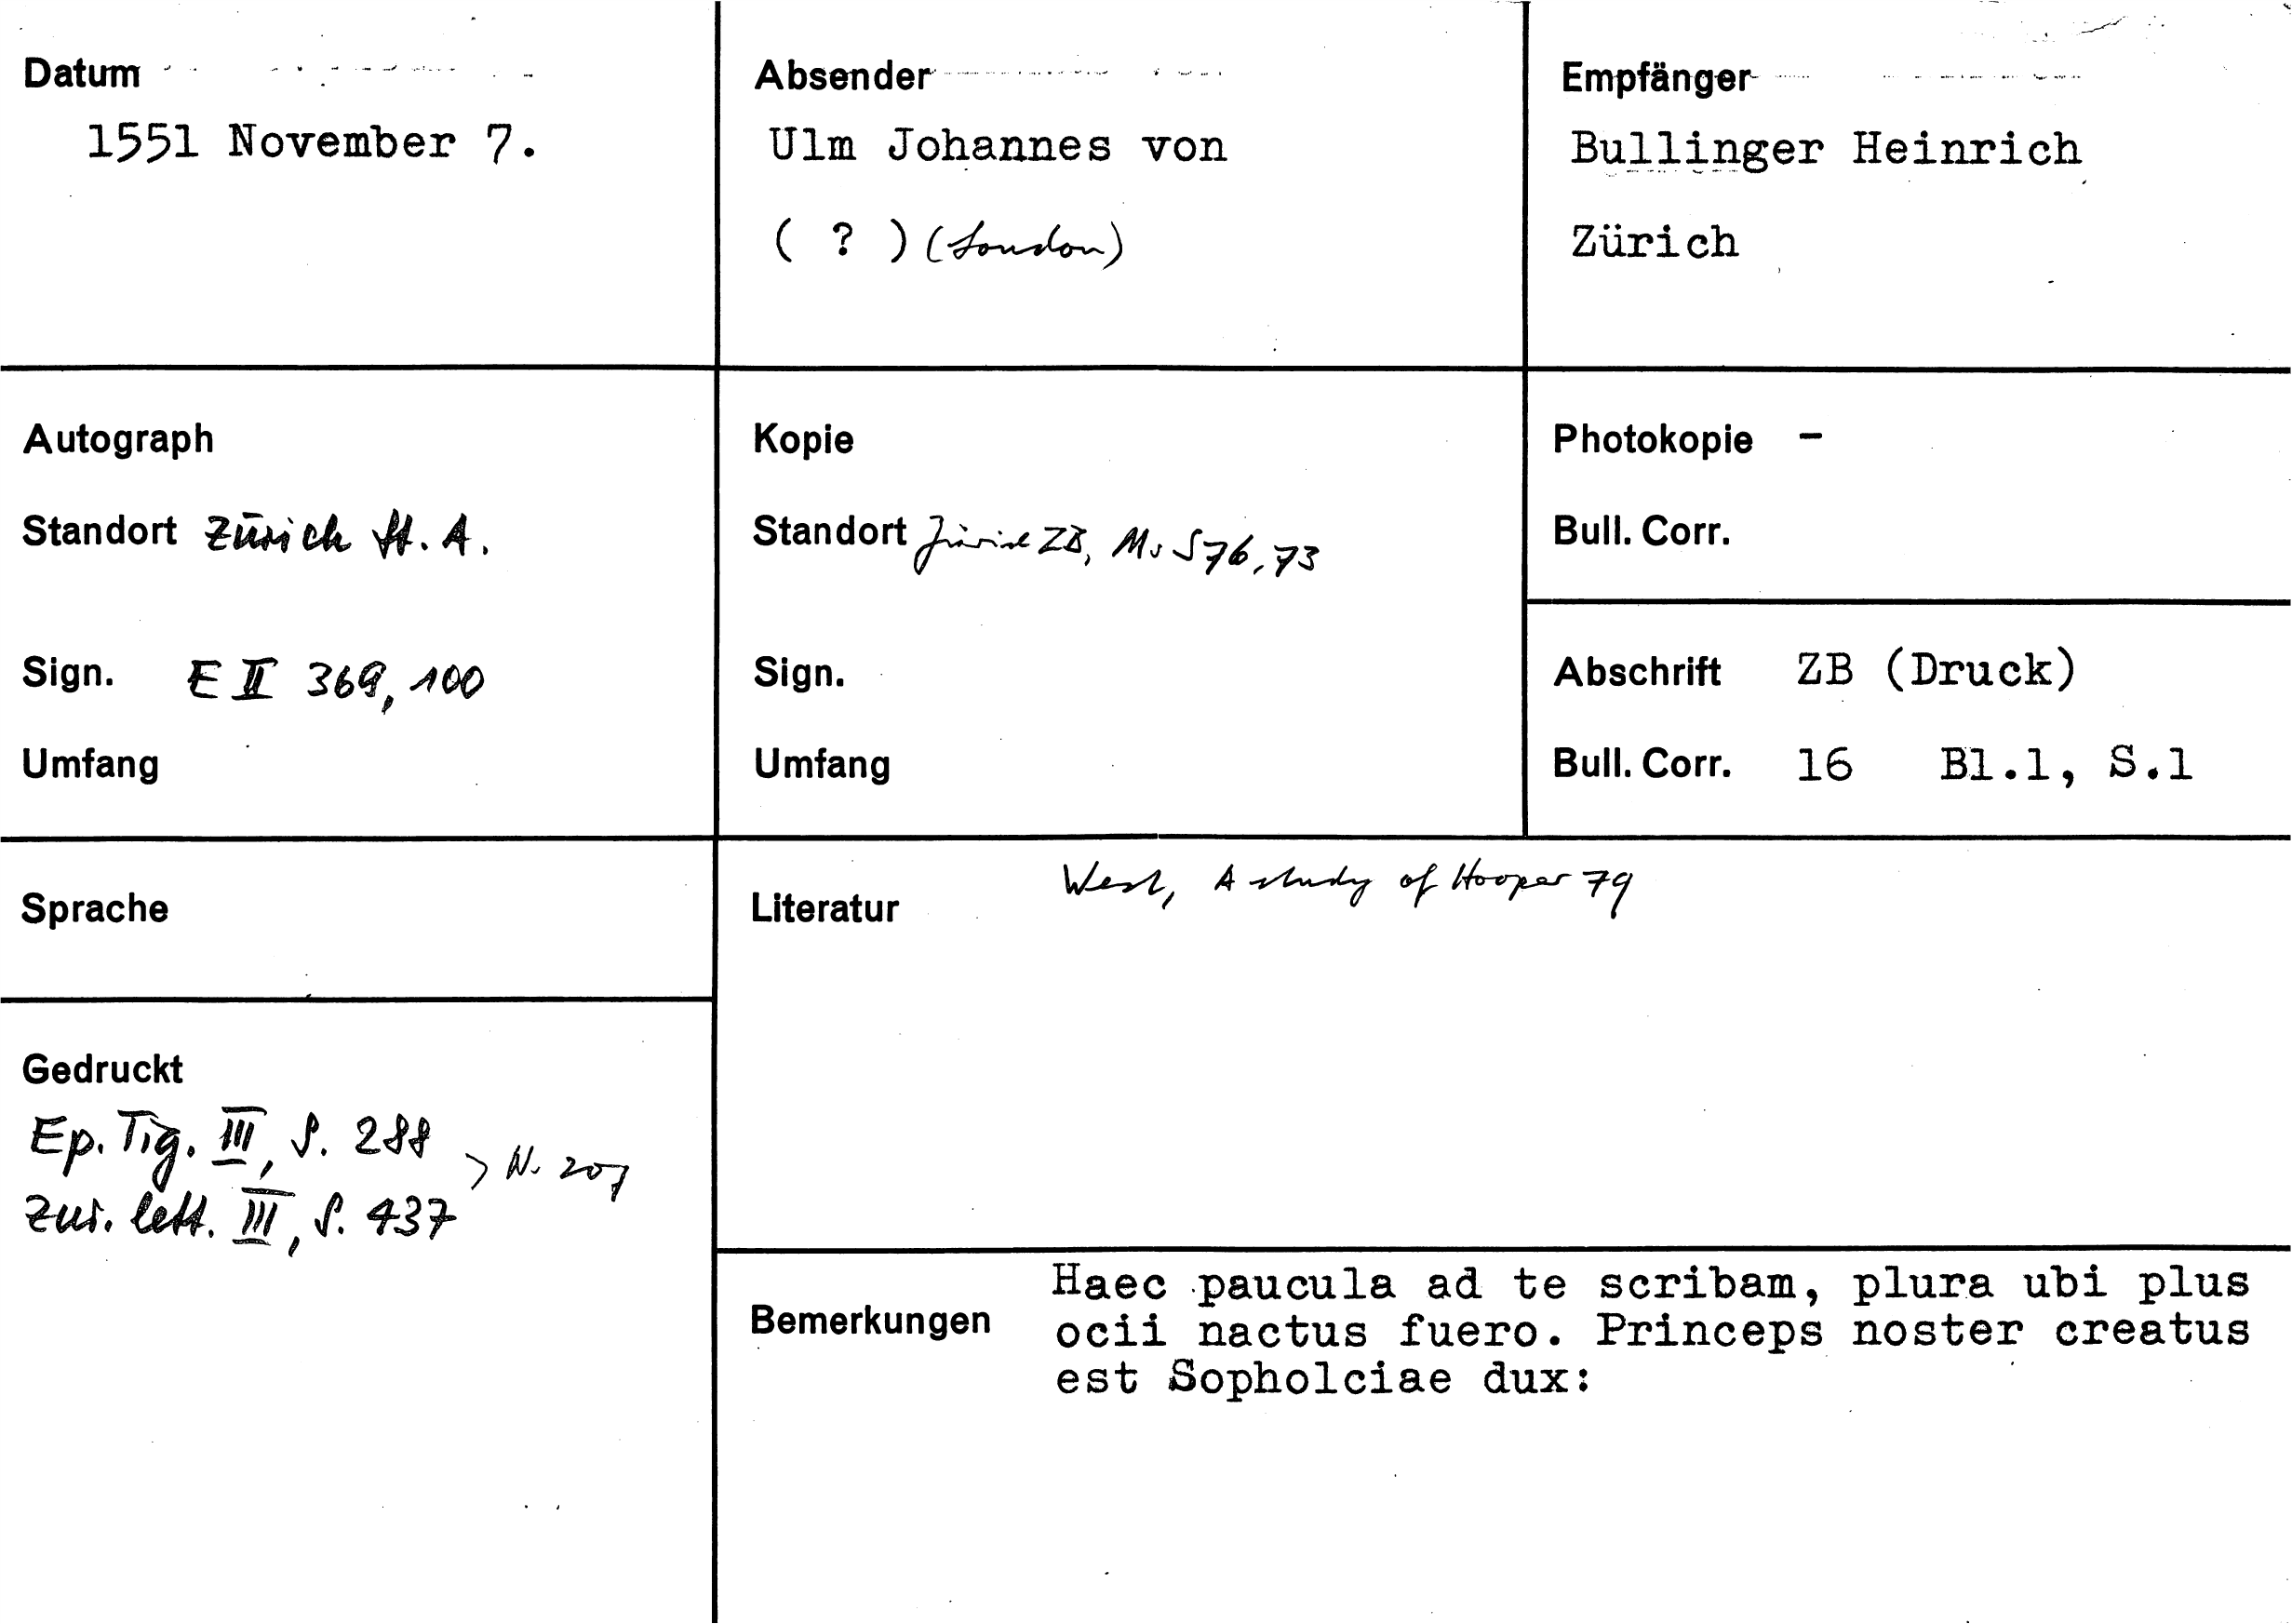 Datum
1551 November 7.
Absender
Ulm Johannes von
( ? ) (London)
Empfänger
Bullinger Heinrich
Zürich
Autograph
Standort Zürich St. A.
Sign. E II 369, 100
Umfang
Kopie
Standort Zürich ZB, Ms S 76, 73
Sign.
Umfang
Photokopie -
Bull. Corr.
Abschrift ZB (Druck)
Bull. Corr. 16 Bl.1, S.1
Sprache
Gedruckt
Ep. Tig. III, S. 288
> N. 207
Zur. lett. III, S. 437
Literatur
West, A study of Hooper 79
Bemerkungen
Haec paucula ad te scribam, plura ubi plus
ocii nactus fuero. Princeps noster creatus
est Sopholciae dux: